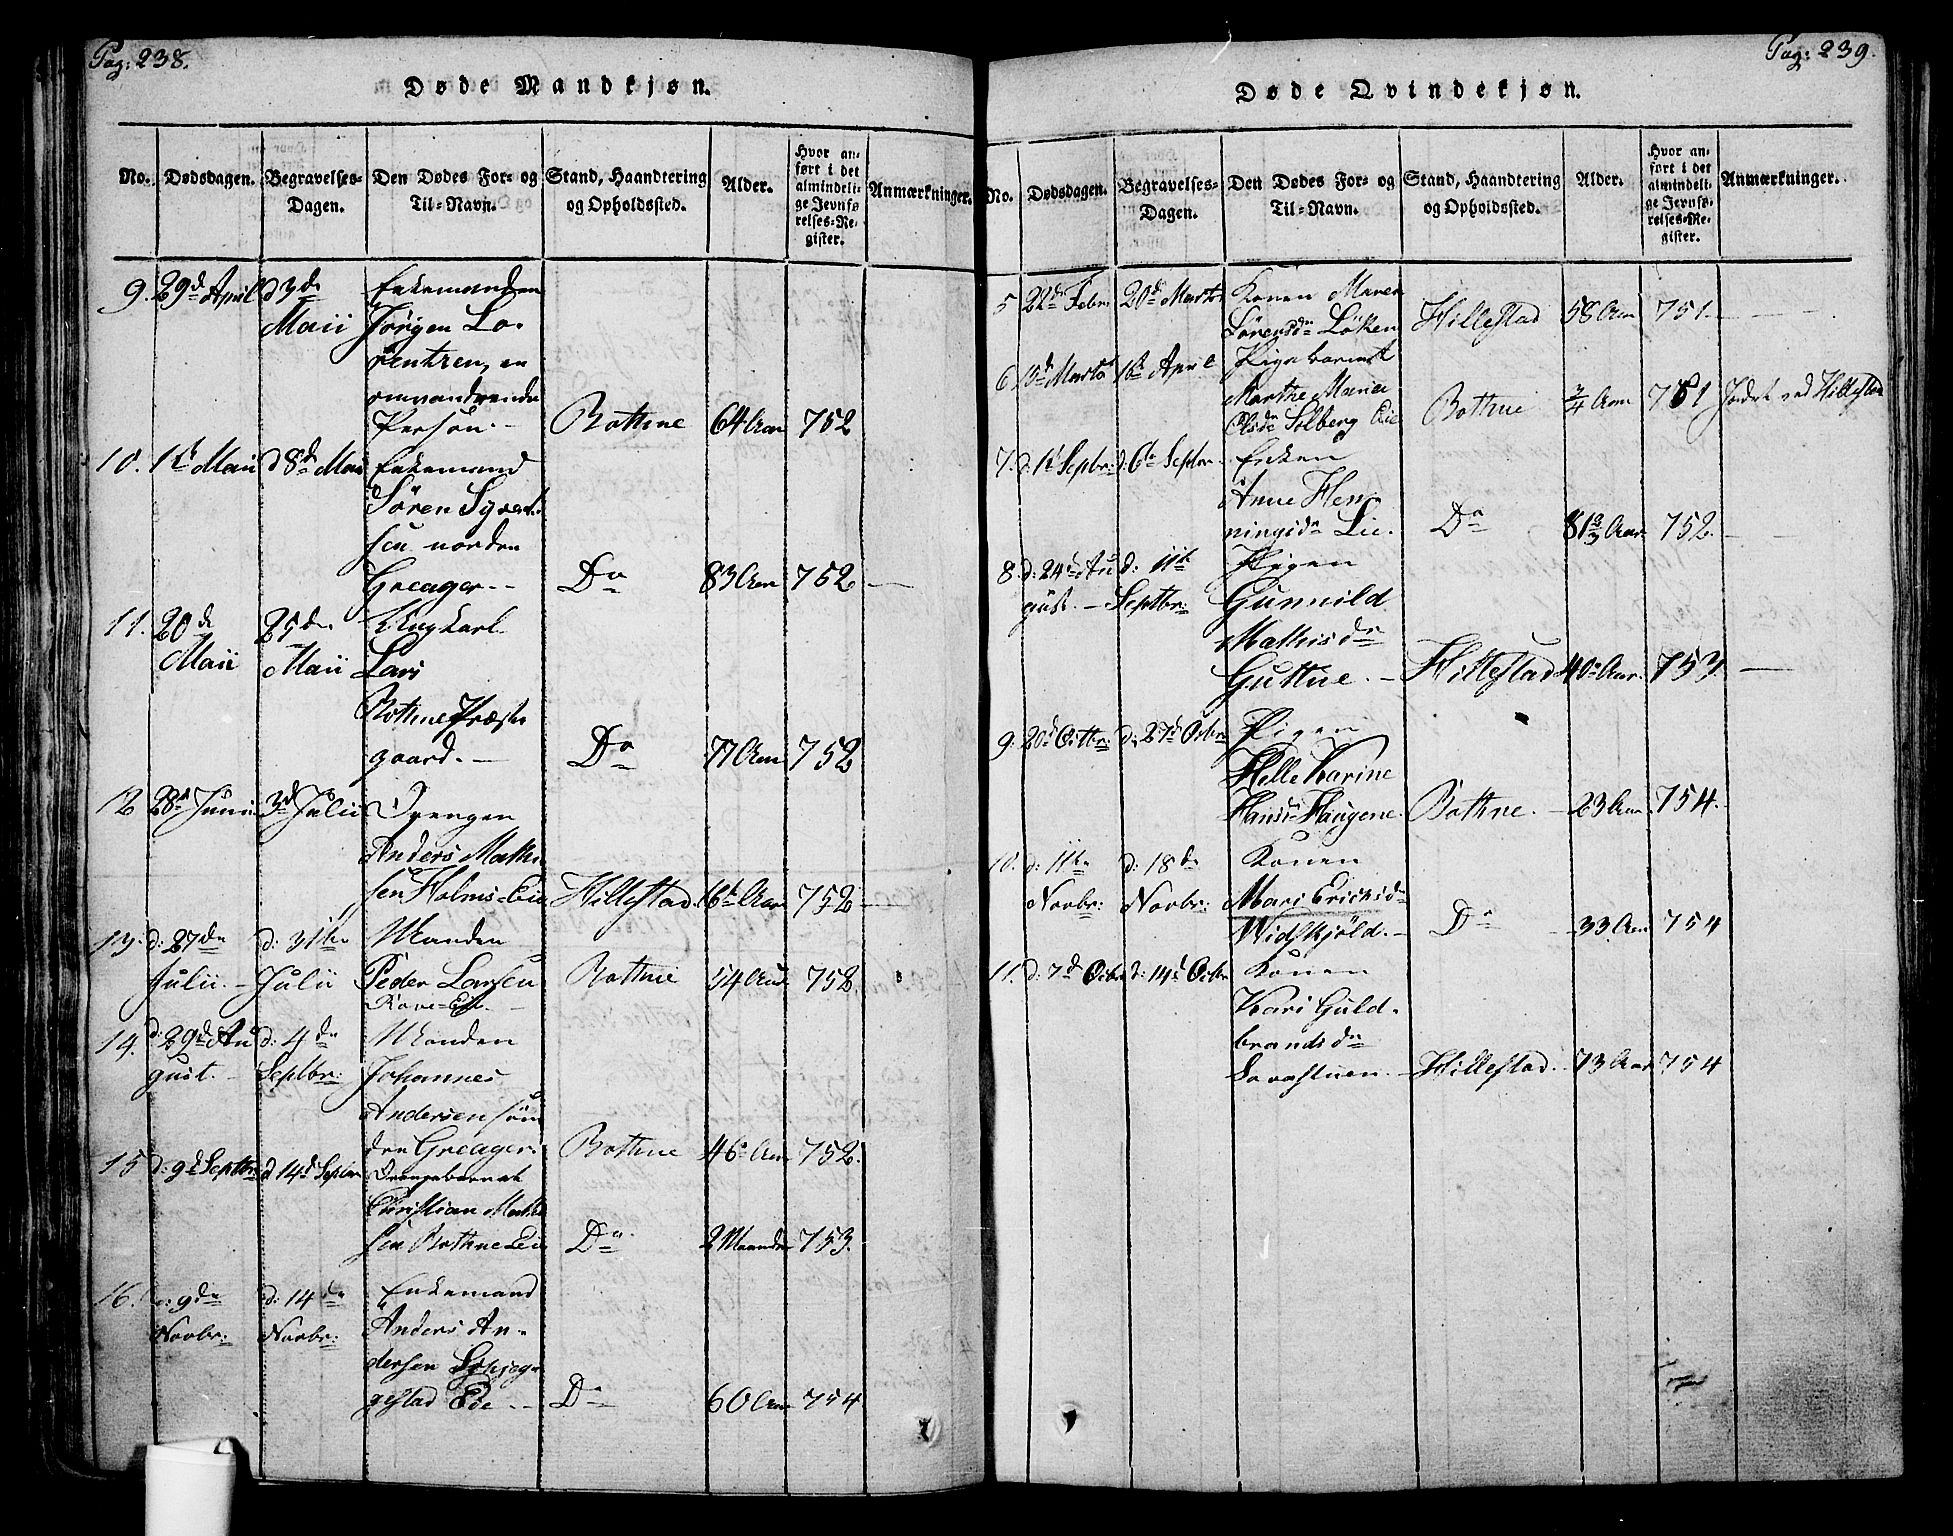 Pag: 238.
Døde Mandkjøn.
No. Dødsdagen. Begravelses-Dagen. Den Dødes For- og Til-Navn. Stand, Haandtering og Opholdssted. Alder. Hvor anført i det almindelige Jevnførelses-Register. Anmærkninger.
9. 29de April d 3de Enkemanden
Maii Jörgen Lo-
rentzen, en
omvandrende
Person. - Bothne 64 Aar 752
10. 1te Maii d 8de Maii Enkemand
Sören Syvert-
sen norden
Greager. - Do 83 Aar 752. -
11. 20de 25de Ungkarl
Maii Maii Lars
Bothne Præste
gaard. - Do 77 Aar 752
12 28de Junii 3de Julii Drengen
Anders Mathi
sen Holms-Eie Hillestad. 16 Aar 752 -
13. d: 27de d: 31te Manden
Julii. - Julii Peder Larsen Bothne 54 Aar 752.
Eie. -
14. d: 29de Au d: 4de Manden
gust. - Septbr: Johannes
Andersen sön
dre Greager. Bothne 46 Aar 752.
15 d: 9de Septbr: d 14de Septbr Drengebarnet
Christian Mathi
sen Bothne Eie Do 2 Maander 753.
16. d: 9de d: 14de Enkemand
Novbr: Novbr: Anders An-
dersen
gestad Eie - Do 60 Aar 754
Pag: 239.
Døde Qvindekjøn.
No. Dødsdagen. Begravelses-Dagen. Den Dødes For- og Til-Navn. Stand, Haandtering og Opholdssted. Alder. Hvor anført i det almindelige Jevnførelses-Register. Anmærkninger.
5 22de Febr: 20de Marts Konen Maren
Sörensdr Löken Hillestad 58 Aar 751. -
6 Marts 1te April Pigebarnet
Marthe Maria
Olsdr Solberg Eie Bothne 3/4 Aar 751 Jordet ved Hillestad
7. d: 1te Septbr: d: 6te Septbr. Enken
Anne Hen-
ningsdr Lie. Do 81 2/3 Aar 752. -
8. d: 24de Au d: 11te Pigen
gust. - Septbr: Gunnild
Mathisdr
Guttue. - Hillestad 40 Aar. 753. -
9. 20de Octbr: d: 27de Octbr Pigen
Helle Karine
Hansdr Haugene. Bothne. - 23 Aar 754.
10. d: 11te d: 18de Konen
Novbr: Novbr: Mari Ericksdr
Widskjöld. - Do - 33 Aar 754
11. d: 7de Octbr d: 14de Octbr Konen
Kari Guld-
brandsdr
- Hillestad. 73 Aar 754